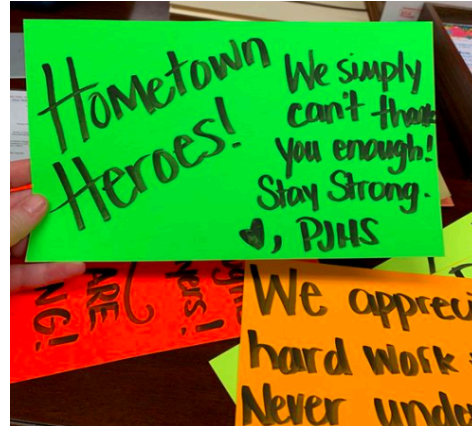 Hometown
Heroes!
We simply
can't thank
you enough!
Stay Strong.
♥, PJHS
ARE
NG!
We apprec
hard work
Never unde